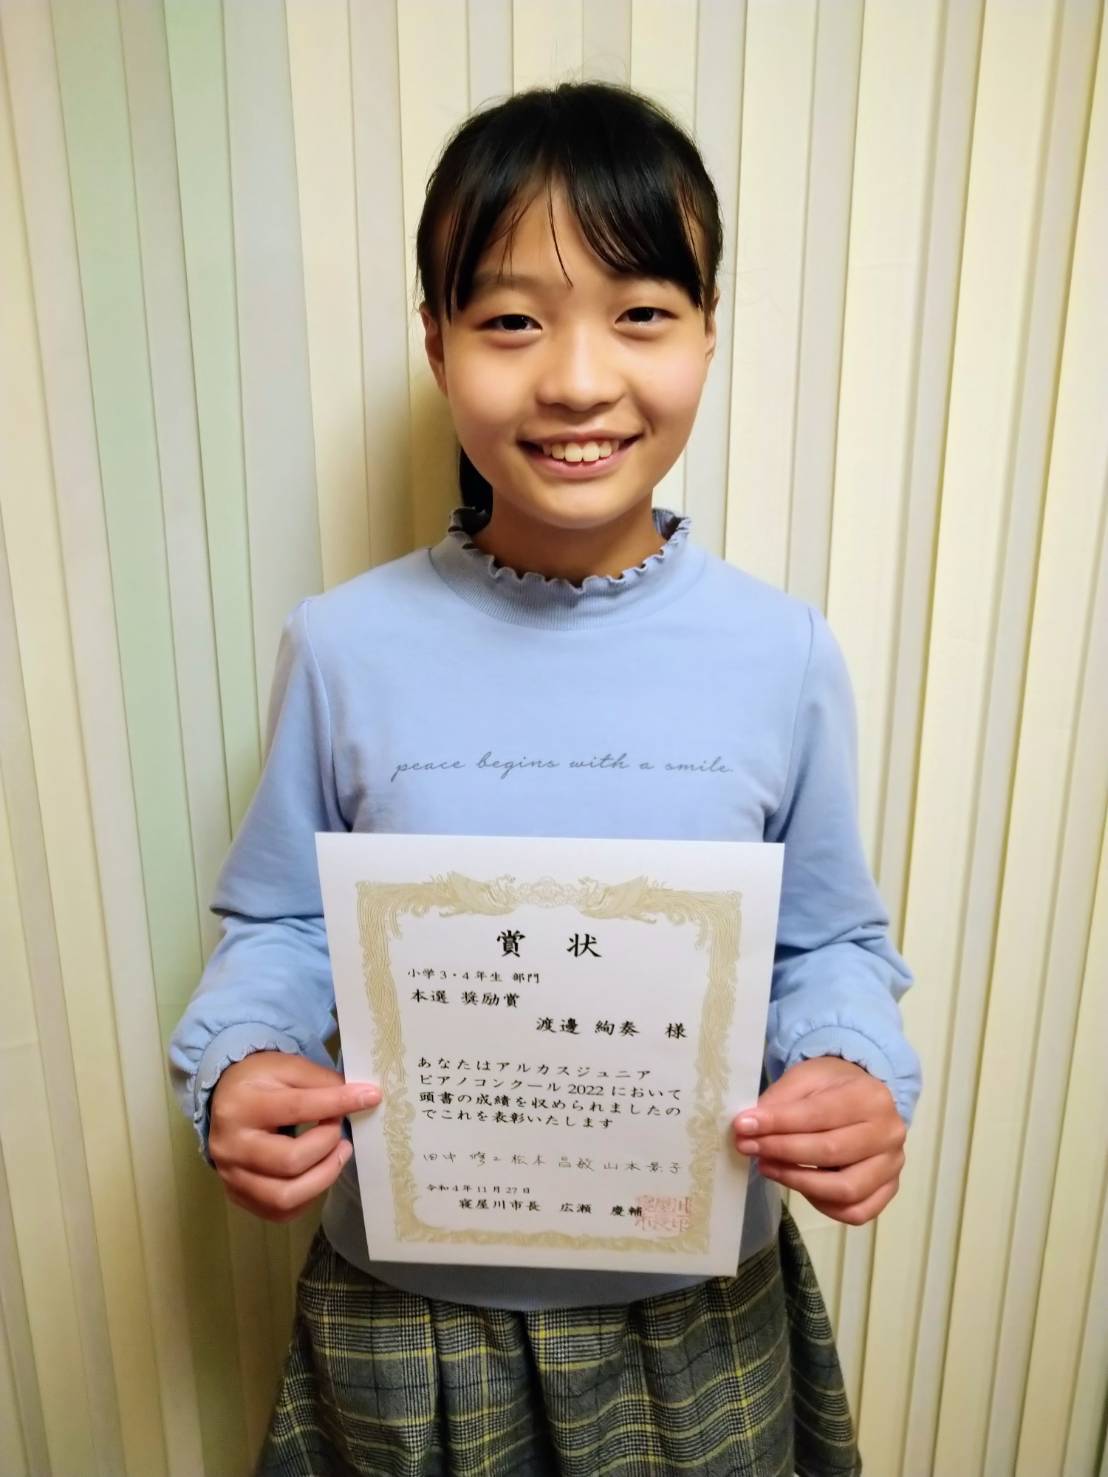 peace begins with a smile.
賞 状
小学3・4年生 部門
本選 奨励賞
渡邊 絢奏 様
あなたはアルカスジュニア
ピアノコンクール2022において
頭書の成績を収められましたの
でこれを表彰いたします
田中 修二 松本 昌敏 山本 景子
令和4年11月27日
寝屋川市長 広瀬 慶輔